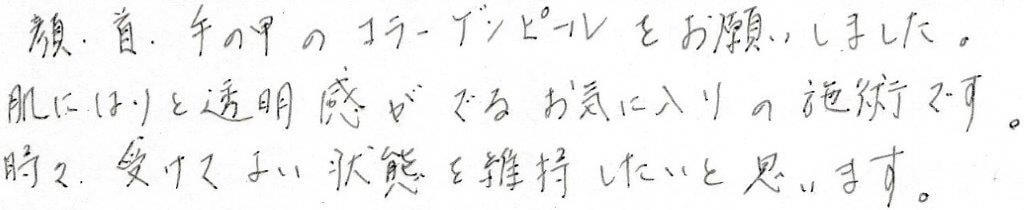 顔.首.手の甲のコラーゲンピールをお願いしました。
肌にはりと透明感がでるお気に入りの施術です。
時々.受けてよい状態を維持したいと思います。